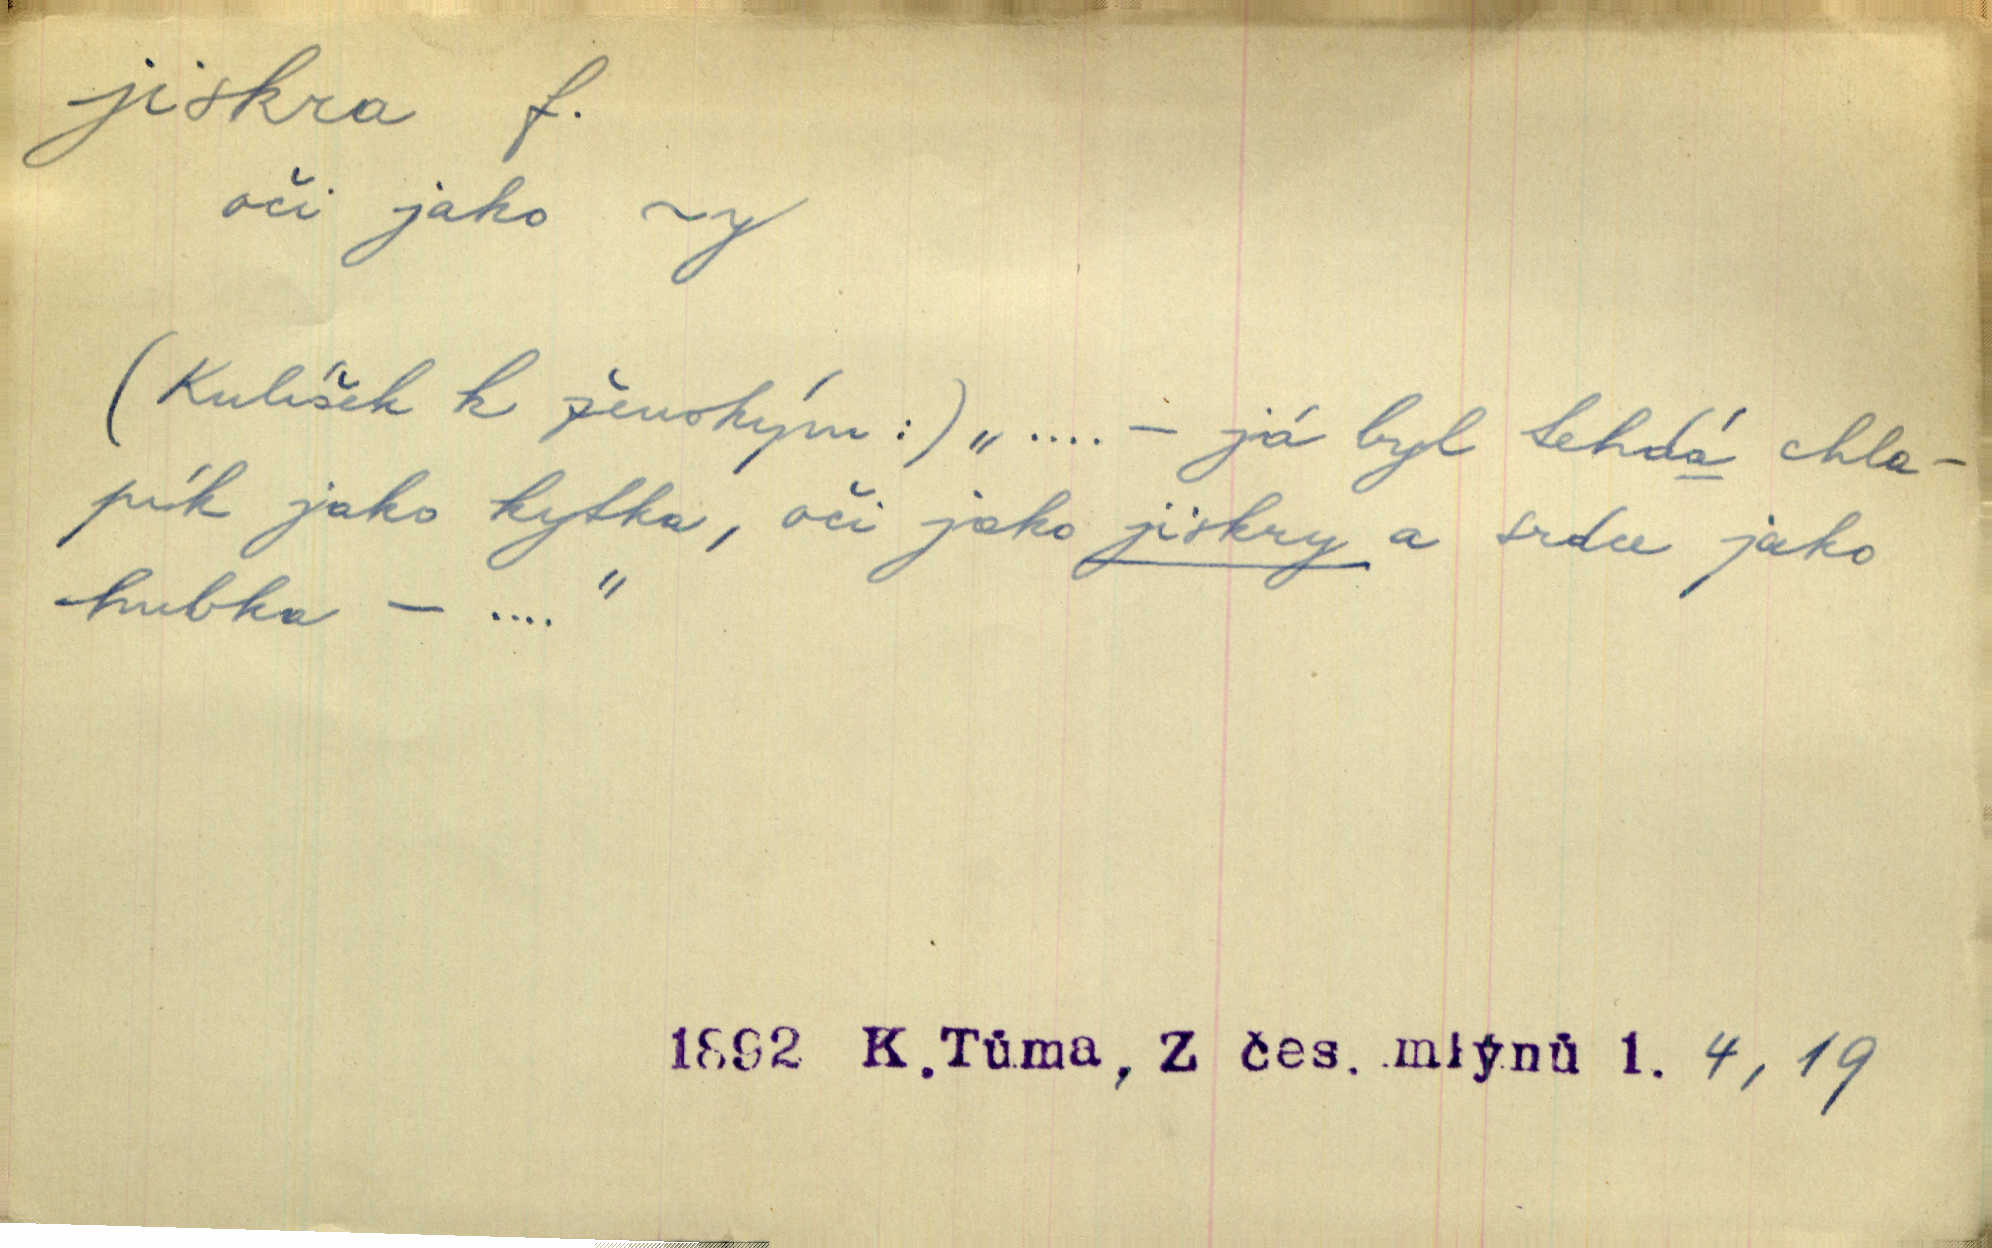 jiskra f.
oči jako ~y
(Kulíšek k ženským:) „.... – já byl tehdá chla-
pík jako kytka, oči jako jiskry a srdce jako
hubka – ...."
1892 K.Tůma, Z čes. mlýnů 1. 4, 19